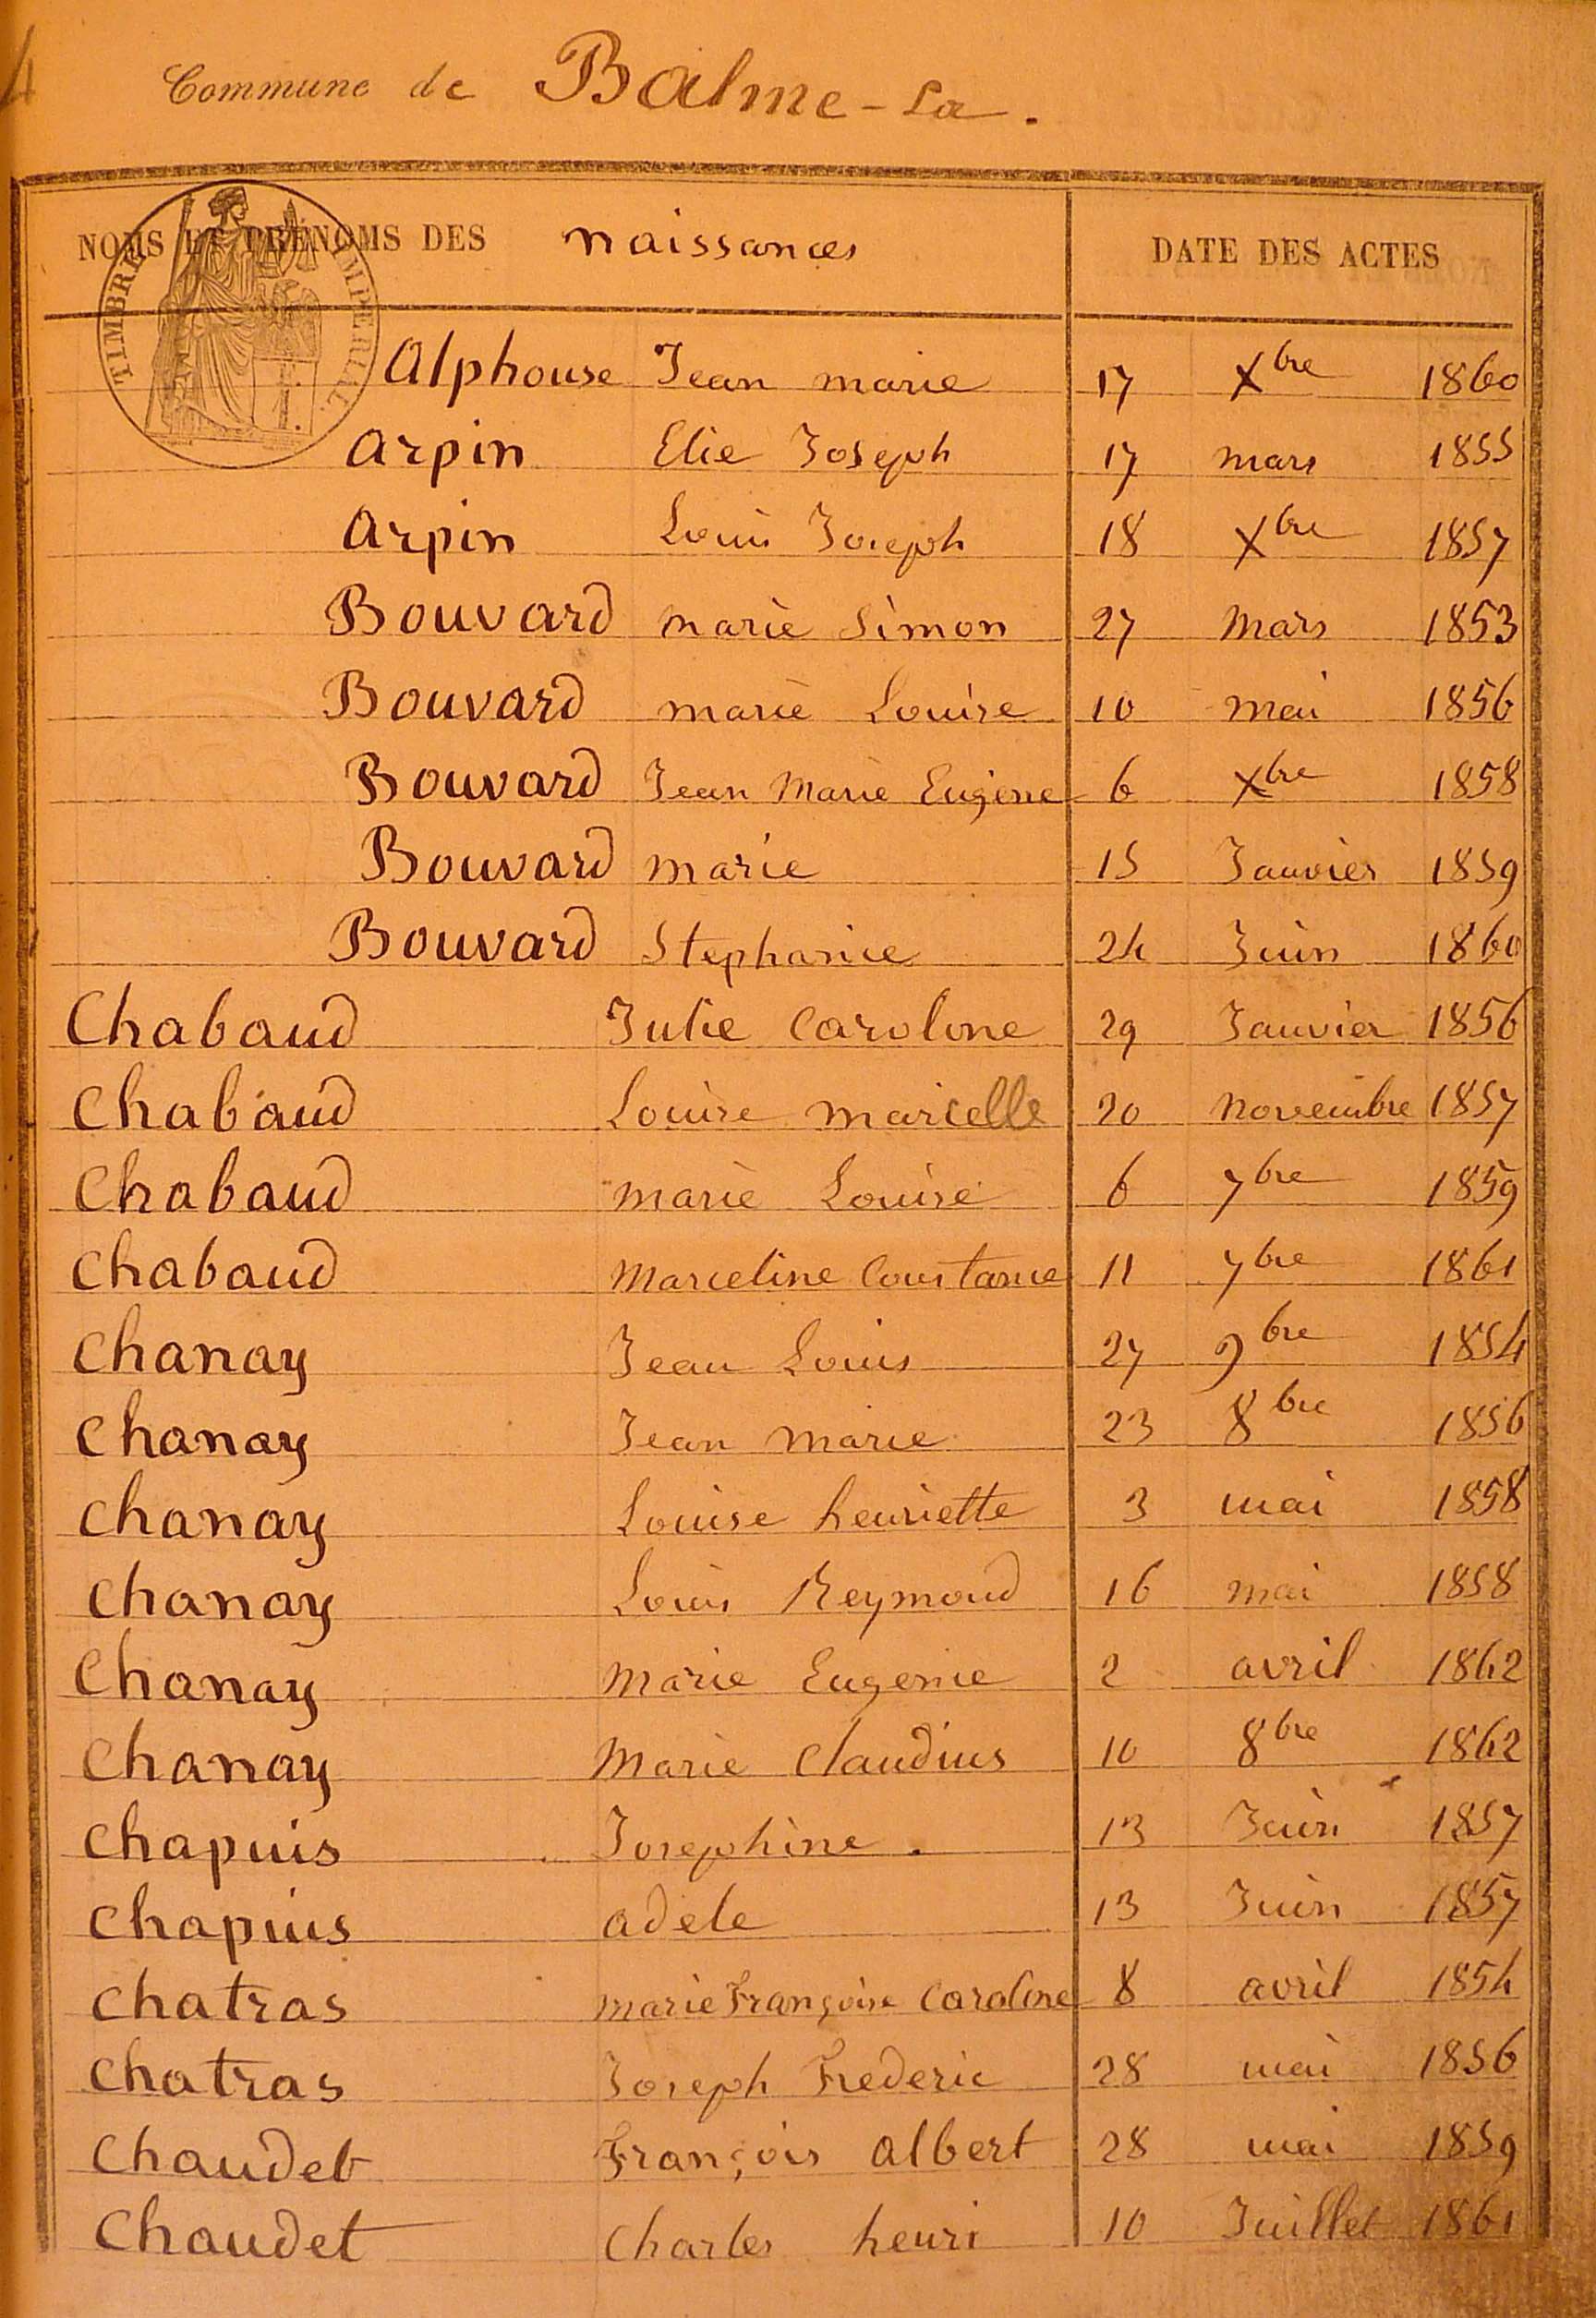 Commune de Balme-La.
NOMS ET PRÉNOMS DES naissances DATE DES ACTES
TIMBRE IMPÉRIAL
Alphonse Jean marie 17 Xbre 1860
Arpin Elie Joseph 17 mars 1855
Arpin Louis Joseph 18 Xbre 1857
Bouvard marie Simon 27 Mars 1853
Bouvard marie Louise 10 mai 1856
Bouvard Jean Marie Eugène 6 Xbre 1858
Bouvard marie 15 Janvier 1859
Bouvard Stephanie 24 Juin 1860
Chabaud Julie Caroline 29 Janvier 1856
Chabaud Louise marcelle 20 novembre 1857
Chabaud marie Louise 6 7bre 1859
Chabaud Marceline Constance 11 7bre 1861
Chanay Jean Louis 27 9bre 1854
Chanay Jean Marie 23 8bre 1856
Chanay Louise henriette 3 mai 1858
Chanay Louis Reymond 16 mai 1858
Chanay Marie Eugenie 2 avril 1862
Chanay Marie Claudius 10 8bre 1862
Chapuis Josephine. 13 Juin 1857
Chapuis adele 13 Juin 1857
Chatras marie Françoise Caroline 8 avril 1854
Chatras Joseph Frederic 28 mai 1856
Chaudet François Albert 28 mai 1859
Chaudet Charles henri 10 Juillet 1861